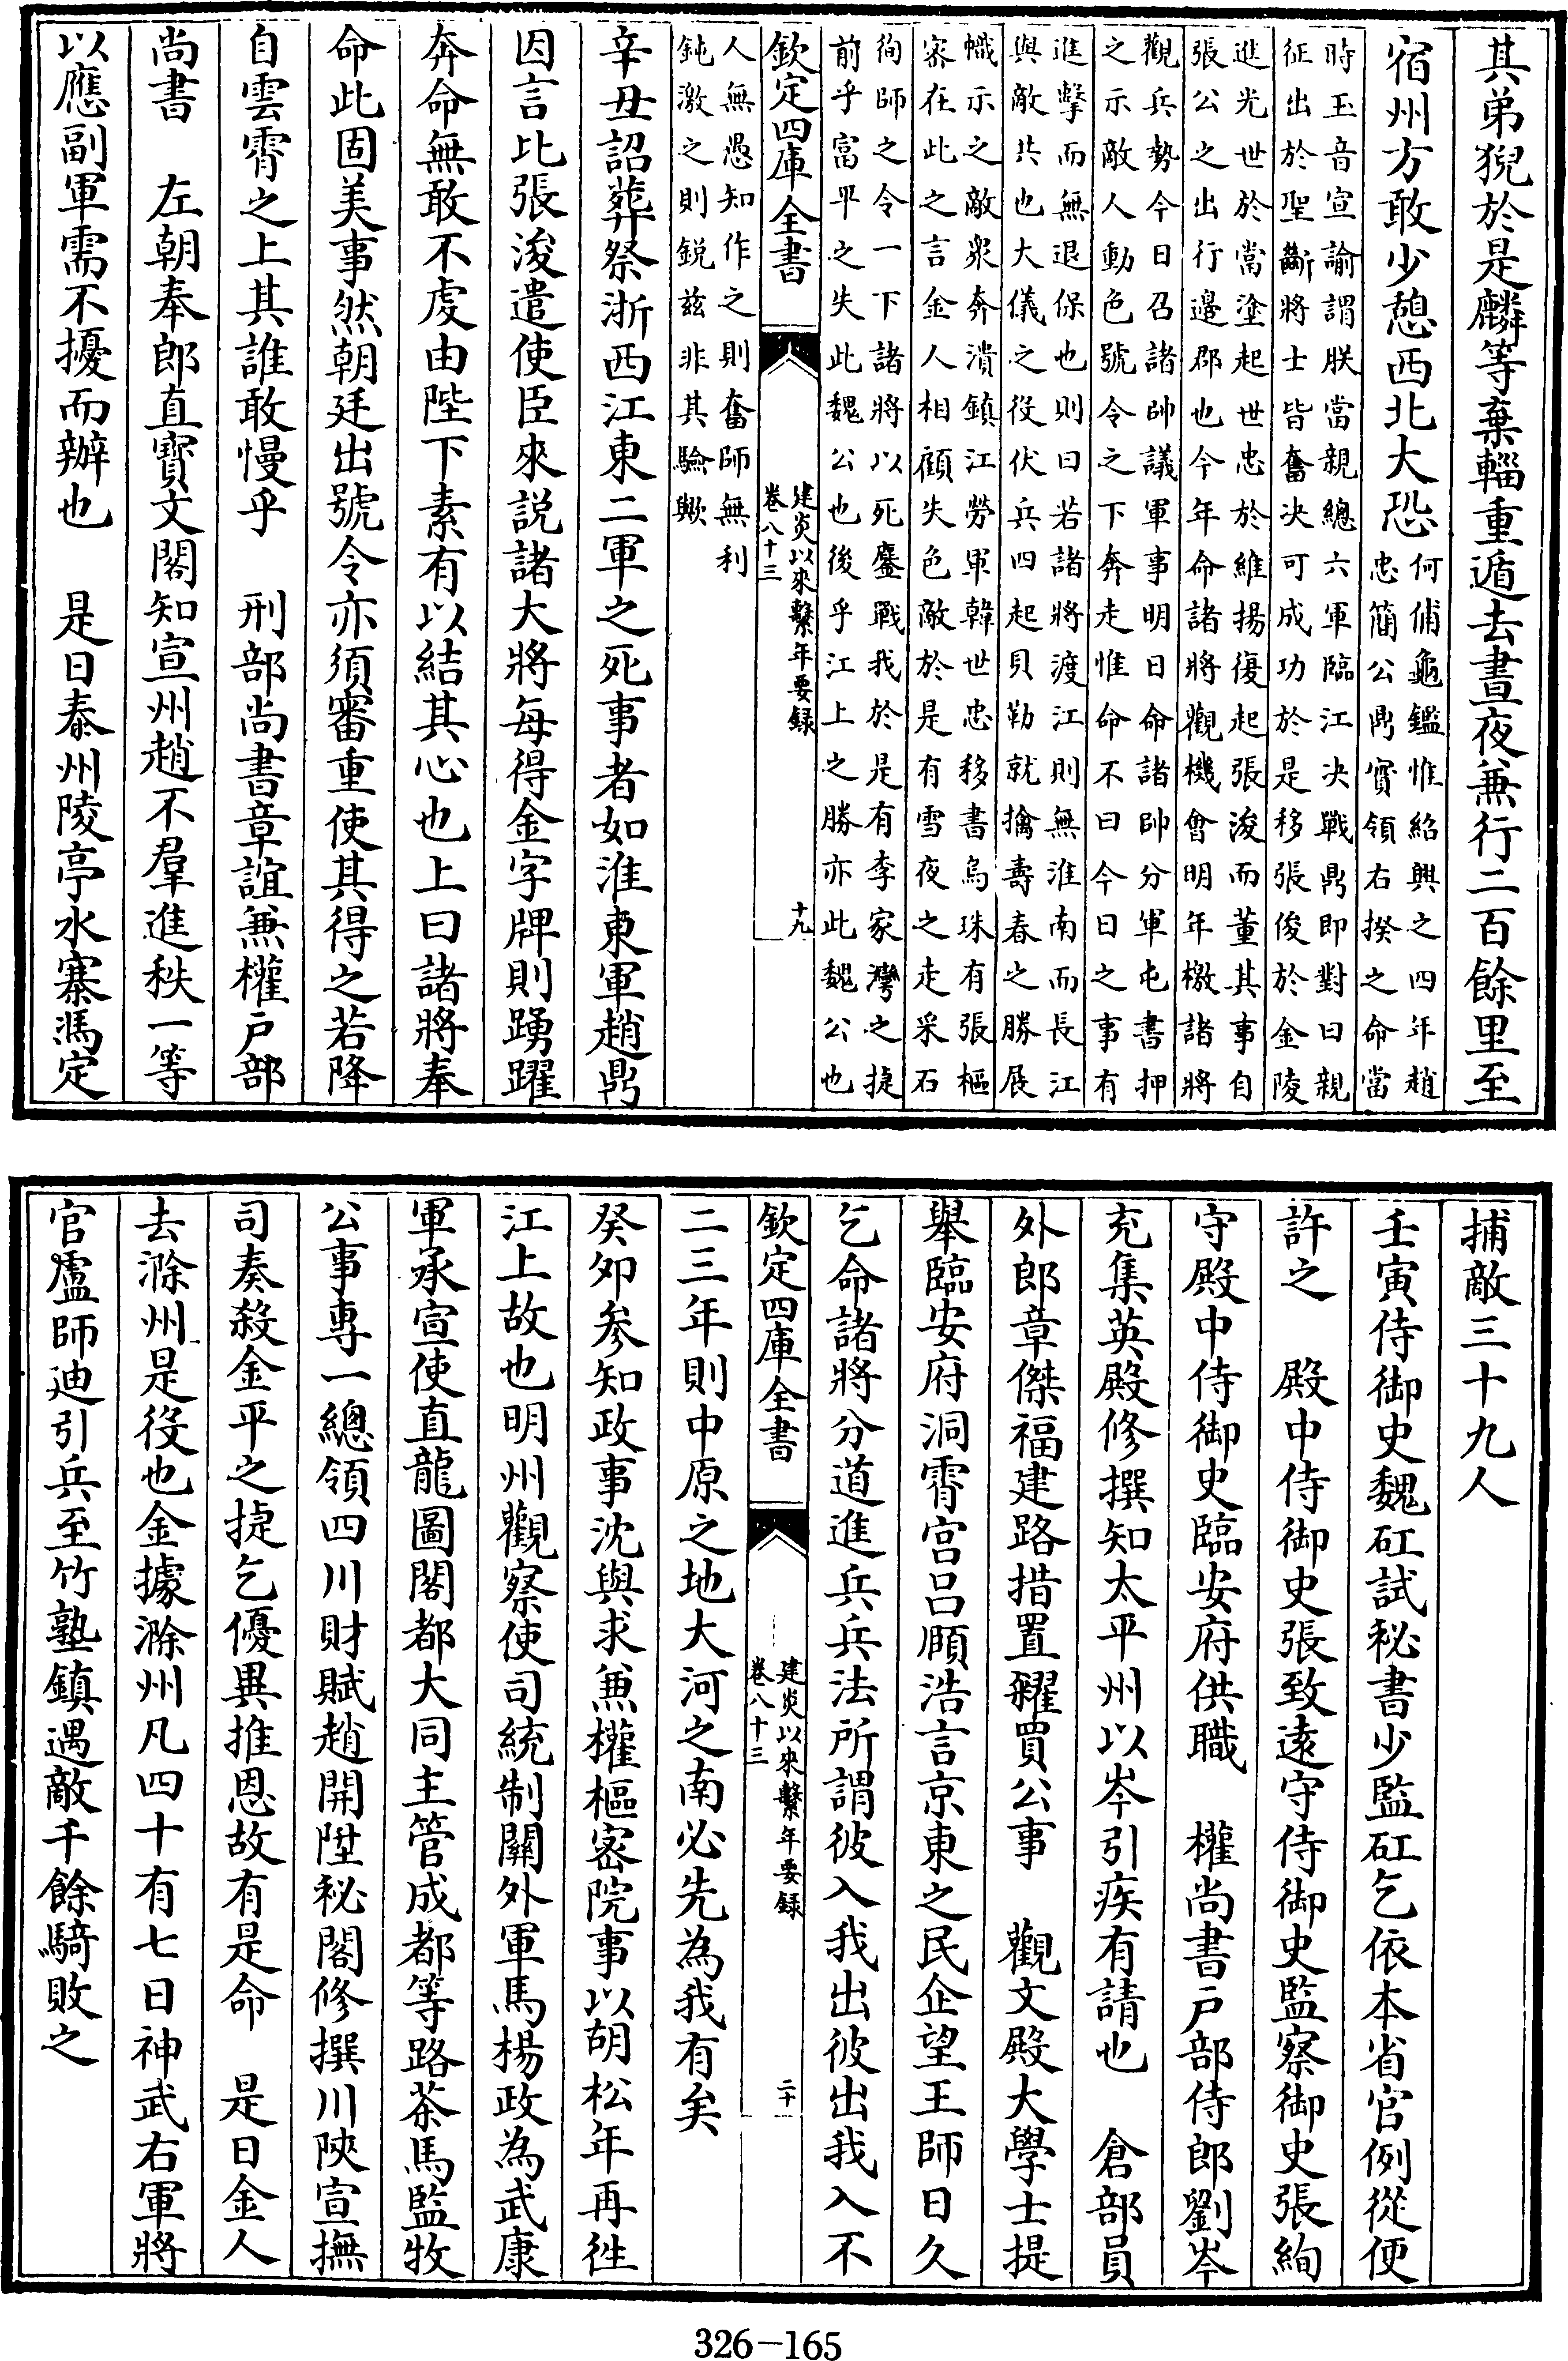 其弟猊於是麟等棄輜重遁去晝夜兼行二百餘里至
宿州方敢少憩西北大恐何俌龜鑑惟紹興之四年趙
忠簡公鼎實領右揆之命當
時玉音宣諭謂朕當親總六軍臨江决戰鼎即對曰親
征出於聖斷將士皆奮决可成功於是移張俊於金陵
進光世於當塗起世忠於維揚復起張浚而董其事自
張公之出行邊郡也今年命諸將觀機會明年檄諸將
觀兵勢今日召諸帥議軍事明日命諸帥分軍屯書押
之示敵人動色號令之下奔走惟命不曰今日之事有
進擊而無退保也則曰若諸將渡江則無淮南而長江
與敵共也大儀之役伏兵四起貝勒就擒壽春之勝展
幟示之敵衆奔潰鎮江勞軍韓世忠移書烏珠有張樞
宻在此之言金人相顧失色敵於是有雪夜之走采石
徇師之令一下諸將以死鏖戰我於是有李家灣之捷
前乎富平之失此魏公也後乎江上之勝亦此魏公也
欽定四庫全書
建炎以來繫年要録
卷八十三
十九
人無愚知作之則奮師無利
鈍激之則鋭兹非其驗歟
辛丑詔葬祭浙西江東二軍之死事者如淮東軍趙鼎
因言比張浚遣使臣來説諸大將每得金字牌則踴躍
奔命無敢不虔由陛下素有以結其心也上曰諸將奉
命此固美事然朝廷出號令亦須審重使其得之若降
自雲霄之上其誰敢慢乎　刑部尚書章誼兼權戸部
尚書　左朝奉郎直寶文閣知宣州趙不羣進秩一等
以應副軍需不擾而辦也　是日泰州陵亭水寨馮定
捕敵三十九人
壬寅侍御史魏矼試秘書少監矼乞依本省官例從便
許之　殿中侍御史張致逺守侍御史監察御史張絢
守殿中侍御史臨安府供職　權尚書戸部侍郎劉岑
充集英殿修撰知太平州以岑引疾有請也　倉部員
外郎章傑福建路措置糴買公事　觀文殿大學士提
舉臨安府洞霄宫吕頤浩言京東之民企望王師日久
乞命諸將分道進兵兵法所謂彼入我出彼出我入不
欽定四庫全書
建炎以來繫年要録
卷八十三
二十
二三年則中原之地大河之南必先為我有矣
癸夘參知政事沈與求兼權樞宻院事以胡松年再徃
江上故也明州觀察使司統制關外軍馬楊政為武康
軍承宣使直龍圖閣都大同主管成都等路茶馬監牧
公事專一總領四川財賦趙開陞秘閣修撰川陜宣撫
司奏殺金平之捷乞優異推恩故有是命　是日金人
去滁州是役也金據滁州凡四十有七日神武右軍將
官盧師迪引兵至竹塾鎮遇敵千餘騎敗之
326-165